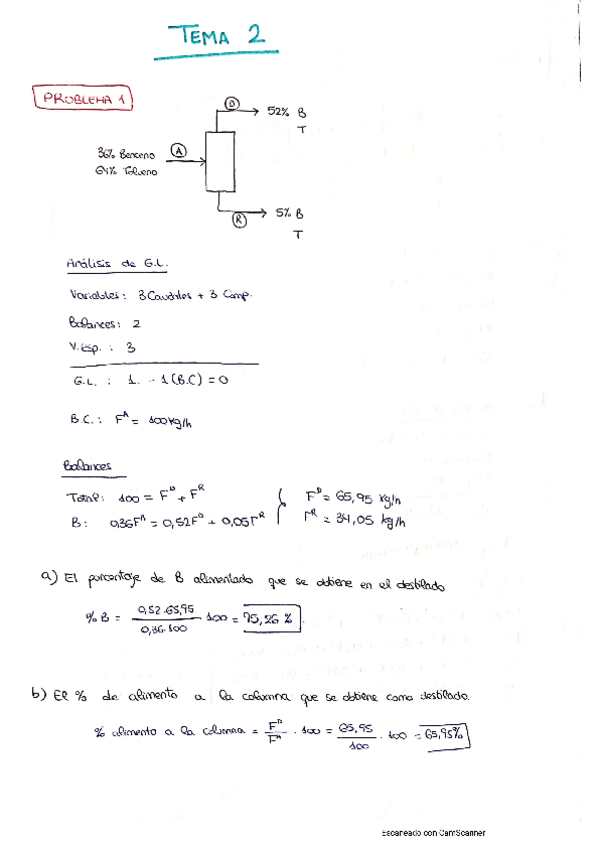 TEMA 2
PROBLEMA 1
D
52% B
T
36% Benceno
A
64% Tolueno
5% B
R
T
Análisis de G.L.
Variables: 3 Caudales + 3 Comp.
Balances: 2
V. Esp. : 3
G.L. : 1. - 1 (B.C) = 0
B.C.: F^A = 100 kg/h
Balances
Total: 100 = F^D + F^R
F^D = 65,95 kg/h
B: 0,36F^A = 0,52F^D + 0,05F^R
F^R = 34,05 kg/h
a) El porcentaje de B alimentado que se obtiene en el destilado
% B = 0,52·65,95 / 0,36·100 · 100 = 95,26 %
b) El % de alimento a la columna que se obtiene como destilado.
% alimento a la columna = F^D / F^A · 100 = 65,95 / 100 · 100 = 65,95%
Escaneado con CamScanner